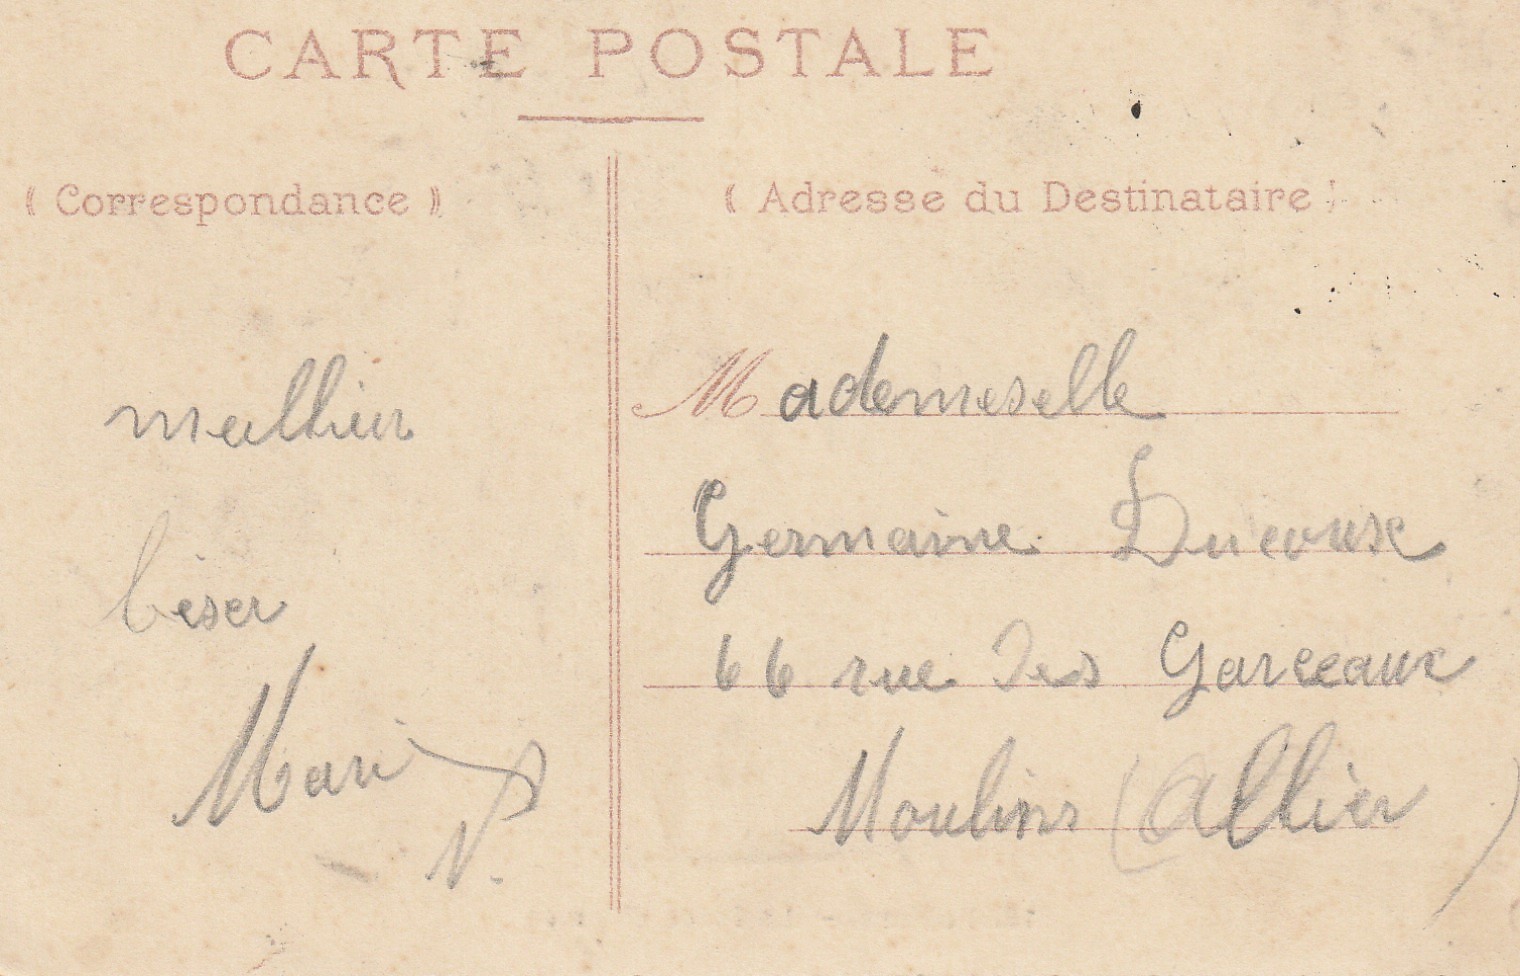 CARTE POSTALE
( Correspondance )
( Adresse du Destinataire )
meilleur
béser
Marie
N.
Mademeselle
Germaine Ducoux
66 rue des Garceaux
Moulins (Allier)